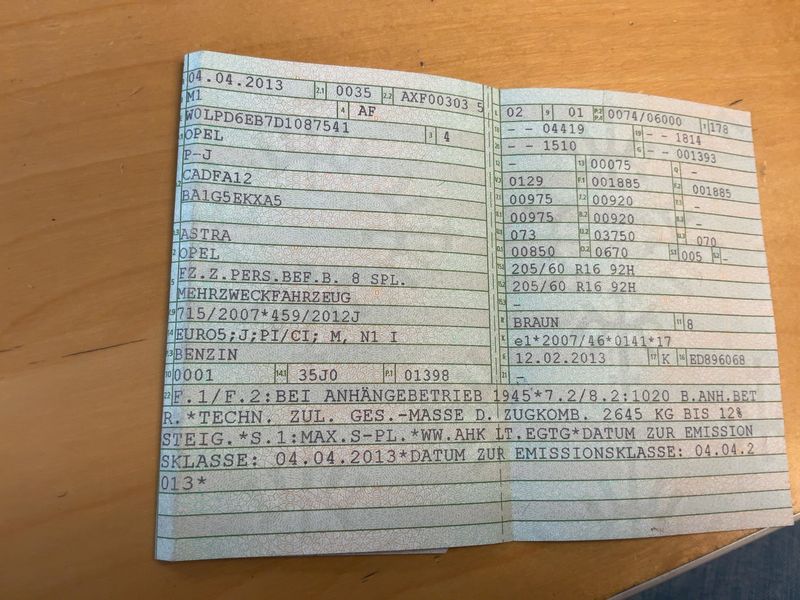 04.04.2013 2.1 0035 2.2 AXF00303 5
M1 4 AF
W0LPD6EB7D1087541 3 4
OPEL
P-J
CADFA12
BA1G5EKXA5
ASTRA
OPEL
FZ.Z.PERS.BEF.B. 8 SPL.
MEHRZWECKFAHRZEUG
715/2007*459/2012J
EURO5;J;PI/CI; M, N1 I
BENZIN
10 0001 14.1 35J0 P.1 01398
L 02 9 01 P.2 P.4 0074/06000 T 178
18 - - 04419 19 - - 1814
20 - - 1510 G - - 001393
12 - 13 00075 Q -
V.7 0129 F.1 001885 F.2 001885
7.1 00975 7.2 00920 7.3 -
8.1 00975 8.2 00920 8.3 -
U.1 073 U.2 03750 U.3 070
O.1 00850 O.2 0670 S.1 005 S.2 -
15.1 205/60 R16 92H
15.2 205/60 R16 92H
15.3 -
R BRAUN 11 8
K e1*2007/46*0141*17
6 12.02.2013 17 K 16 ED896068
21 -
22 F.1/F.2:BEI ANHÄNGEBETRIEB 1945*7.2/8.2:1020 B.ANH.BET
R.*TECHN. ZUL. GES.-MASSE D. ZUGKOMB. 2645 KG BIS 12%
STEIG.*S.1:MAX.S-PL.*WW.AHK LT.EGTG*DATUM ZUR EMISSION
SKLASSE: 04.04.2013*DATUM ZUR EMISSIONSKLASSE: 04.04.2
013*